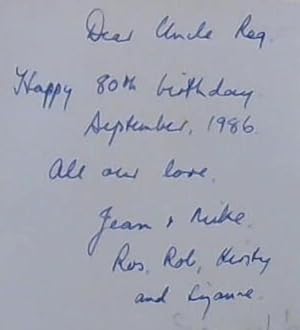 Dear Uncle Reg.
Happy 80th birthday.
September, 1986.
All our love.
Jean & Mike.
Ros, Rob, Kirsty
and